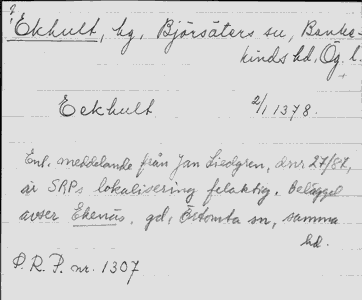 ? Ekhult, hg, Björsäters sn, Banke-
kinds hd, Ög. l.
Eekhult 2/1 1378.
Enl. meddelande från Jan Liedgren, dnr 27/87,
är SRPs lokalisering felaktig. Belägget
avser Ekenäs, gd, Östomta sn, samma
hd.
P.R.P. nr. 1307